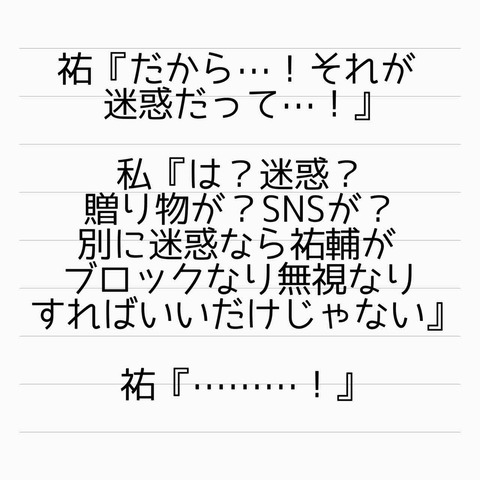 祐『だから…！それが
迷惑だって…！』
私『は？迷惑？
贈り物が？SNSが？
別に迷惑なら祐輔が
ブロックなり無視なり
すればいいだけじゃない』
祐『………！』